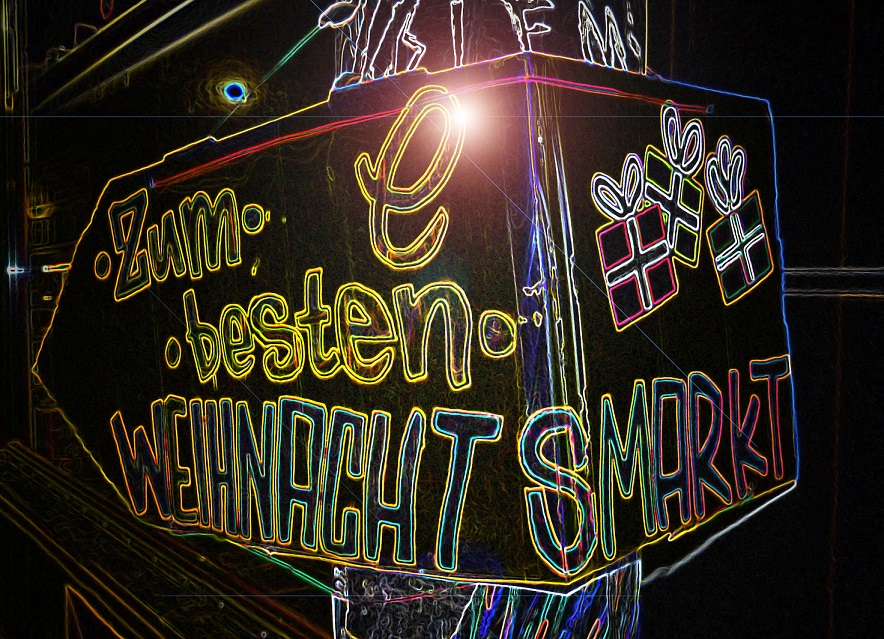 e
·Zum·
·besten·
WEIHNACHTSMARKT